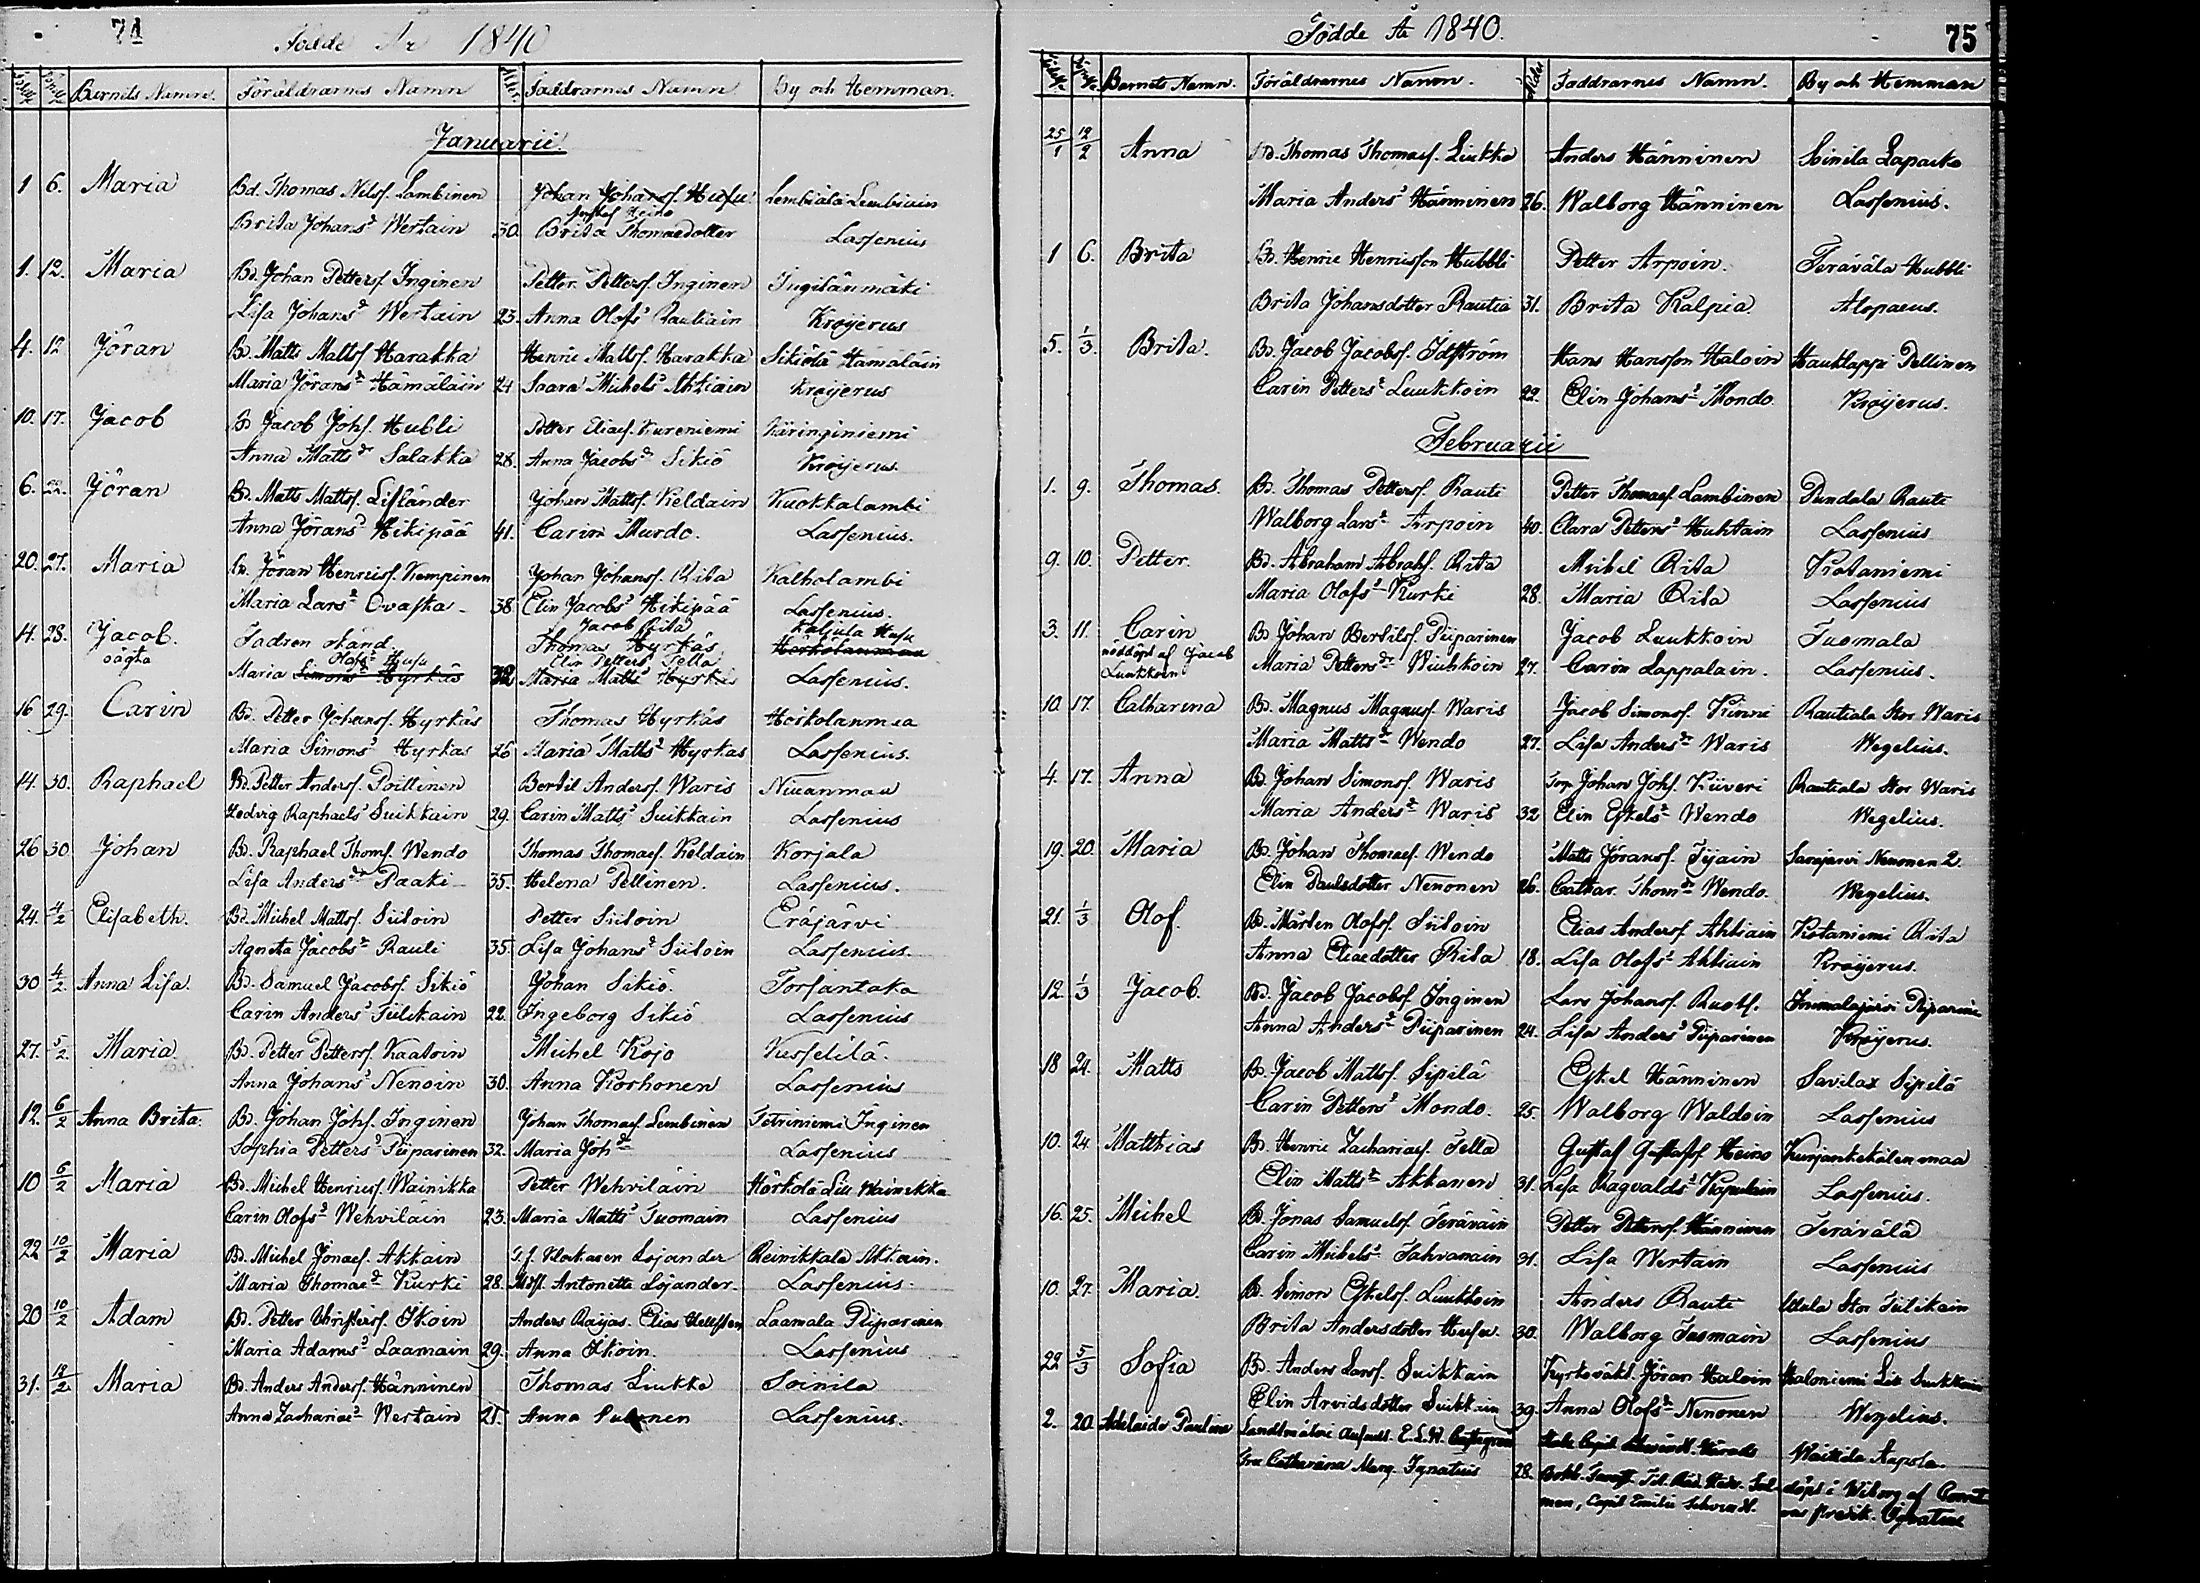 74
Födde År 1840
Födelse Döpelse Barnets Namn. Föräldrarnes Namn Ålder Faddrarnes Namn By och Hemman.
Januarii.
1 6. Maria Bd. Thomas Nilsf. Lambinen Johan Johansf. Husu Lembiälä Lembiäin
Justaf Heino
Brita Johans d. Wertain 30. Brita Thomasdotter Lassenius
1. 12. Maria Bd. Johan Pettersf. Inginen Petter Pettersf. Inginen Ingilänmäki
Lisa Johans d. Wertain 23. Anna Olofs d. Rautiain Krøijerus
4. 12 Jöran Bd. Matts Mattsf. Harakka Henric Mattsf. Harakka Sikiölä Hämäläin
Maria Jörans d. Hämäläin 24 Saara Michels d. Ahtiain Krøijerus
10. 17. Jacob Bd Jacob Johf. Hubli Petter Eliasf. Kureniemi Käringiniemi
Anna Matts dr Salakka 28. Anna Jacobs dr Sikiö Krøijerus
6. 22. Jöran Bd. Matts Mattsf. Lifländer Johan Mattsf. Keldain Kuokkalambi
Anna Jörans d. Hikipää 41. Carin Murdo. Lassenius.
20. 27. Maria Bd. Jöran Henricsf. Kempinen Johan Johansf. Rita Kalholambi
Maria Lars d. Ovaska 38 Elin Jacobs d. Hikipää Lassenius
Jacob Rita Kaljula Husu
14. 28. Jacob. Fadren okänd Thomas Hyrkäs Härkölänmaa
oägta Olofs d. Husu Elin Petters d. Tella
Maria Simons d. Hyrkäs Maria Matts d. Hyrkäs Lassenius.
16 29. Carin Bd. Petter Johansf. Hyrkäs Thomas Hyrkäs Härkölänmaa
Maria Simons d. Hyrkäs 26 Maria Matts d. Hyrkäs Lassenius.
14. 30. Raphael Bd. Petter Andersf. Poittinen Bertil Andersf. Waris Niuanmaa
Hedvig Raphaels d. Suikkain 29. Carin Matts d. Suikkain Lassenius
26 30 Johan Bd. Raphael Thomf. Wendo Thomas Thomasf. Keldain Korjala
Lisa Anders dr Paaki 35. Helena Pellinen. Lassenius.
24. 4/2 Elisabeth. Bd. Michel Mattsf. Siiloin Petter Siiloin Eräjärvi
Agneta Jacobs d. Rauti 35. Lisa Johans d. Siiloin Lassenius.
30 4/2 Anna Lisa. Bd. Samuel Jacobsf. Sikiö Johan Sikiö. Torsantaka
Carin Anders d. Tiilikain 22. Ingeborg Sikiö Lassenius
27. 5/2 Maria Bd. Petter Pettersf. Kaatoin Michel Kojo Kusselilä.
Anna Johans d. Nenoin 30. Anna Korhonen Lassenius
12. 6/2 Anna Brita. Bd. Johan Johf. Inginen Johan Thomasf. Lembinen Tetriniemi Inginen
Sophia Petters d. Piiparinen 32. Maria Joh dr Lassenius
10 6/2 Maria Bd. Michel Henricsf. Wainikka Petter Wehviläin Härkölä Lill Wainikka
Carin Olofs d. Wehviläin 23. Maria Matts d. Tuomain Lassenius
22 10/2 Maria Bd. Michel Jonasf. Akkain G.f. Klockaren Lojander Reinikkala Akkain.
Maria Thomas d. Kurki 28. Msll. Antonette Lojander Lassenius.
20 10/2 Adam Bd. Petter Christersf. Ikoin Anders Raijas. Elias Hellsten Laamala Piiparinen
Maria Adams d. Laamain 29. Anna Ikoin. Lassenius
31. 12/2 Maria Bd. Anders Andersf. Hänninen Thomas Liukka Soinila
Anna Zacharias d. Wertain 25. Anna Lassenius.
75
Födde År 1840.
Födelse Döpelse Barnets Namn. Föräldrarnes Namn. Ålder Faddrarnes Namn. By och Hemman
25/1 12/2 Anna Bd. Thomas Thomasf. Liukka Anders Hänninen Soinila Lapaito
Maria Anders d. Hänninen 26. Walborg Hänninen Lassenius.
1 6. Brita Bd. Henric Henricsson Hubbli Petter Arpoin. Terävälä Hubbli
Brita Johansdotter Rautia 31. Brita Kalpia Alopaeus.
5. 1/3. Brita. Bd. Jacob Jacobsf. Idström Hans Hansson Haloin Hauklappi Pellinen
Carin Petters d. Luukkoin 22. Elin Johans d. Mondo. Krøijerus.
Februarii
1. 9. Thomas. Bd. Thomas Pettersf. Rauti Petter Thomasf. Lambinen Pundala Rauti
Walborg Lars d. Arpoin 40. Clara Petters d. Huhtain Lassenius
9. 10. Petter. Bd. Abraham Abrahf. Rita Michel Rita Kotaniemi
Maria Olofs d. Kurki 28. Maria Rita Lassenius
3. 11. Carin Bd Johan Bertilsf. Piiparinen Jacob Luukkoin Tuomala
nöddöpt af Jacob Luukkoin Maria Petters dr Wiuhkoin 27. Carin Lappalain. Lassenius.
10. 17. Catharina Bd. Magnus Magnusf. Waris Jacob Simonsf. Kinni Rautiala Stor Waris
Maria Matts dr Wendo 27. Lisa Anders dr Waris Wegelius.
4. 17. Anna Bd. Johan Simonsf. Waris Torp. Johan Johf. Kiiveri Rautiala Stor Waris
Maria Anders d. Waris 32 Elin Eskels d. Wendo Wegelius.
19. 20. Maria Bd. Johan Thomasf. Wendo Matts Jöransf. Tijain Sarajärvi Nenonen 2.
Elin Paulsdotter Nenonen 26. Cathar. Thom dr Wendo. Wegelius.
21. 1/3 Olof. Bd. Mårten Olofsf. Siiloin Elias Andersf. Ahtiain Kotaniemi Rita
Anna Eliaedotter Rita 18. Lisa Olofs d. Ahtiain Krøijerus.
12. 1/3 Jacob. Bd. Jacob Jacobsf. Inginen Lars Johansf. Ruots. Immalajärvi Piiparinen
Anna Anders d. Piiparinen 24. Lisa Anders d. Piiparinen Krøijerus.
18 24. Matts Bd. Jacob Mattsf. Sipilä Eskel Hänninen Savilax Sipilä
Carin Petters d. Mondo. 25. Walborg Waldoin Lassenius
10. 24 Matthias Bd. Henric Zachariasf. Tella Gustaf Gustafsf. Heino Kurjankekälenmaa
Elin Matts dr Akkanen 31. Lisa Ragvalds d. Kapulain Lassenius.
16. 25. Michel Bd. Jonas Samuelsf. Teräväin Petter Pettersf. Hänninen Terävälä
Carin Michels d. Tahvanain 31. Lisa Wertain Lassenius
10. 27. Maria. Bd. Simon Eskelsf. Luukkoin Anders Rauti Utula Stor Tiilikain
Brita Andersdotter Husu 30. Walborg Tuomain Lassenius
22 5/3 Sofia Bd. Anders Larsf. Suikkain Kyrkovakt. Jöran Haloin Haloniemi Lill Suikkain
Elin Arvidsdotter Suikkain 39. Anna Olofs d. Nenonen Wegelius.
2. 20. Adelaide Paulina Landtmätari E. L. W. Stabs Capit. Schwindt. Kapola
Fru Catharina Marg. Ignatius 28. döpt i Wiborg af
Capit. Emilie Schwindt. Ignatius